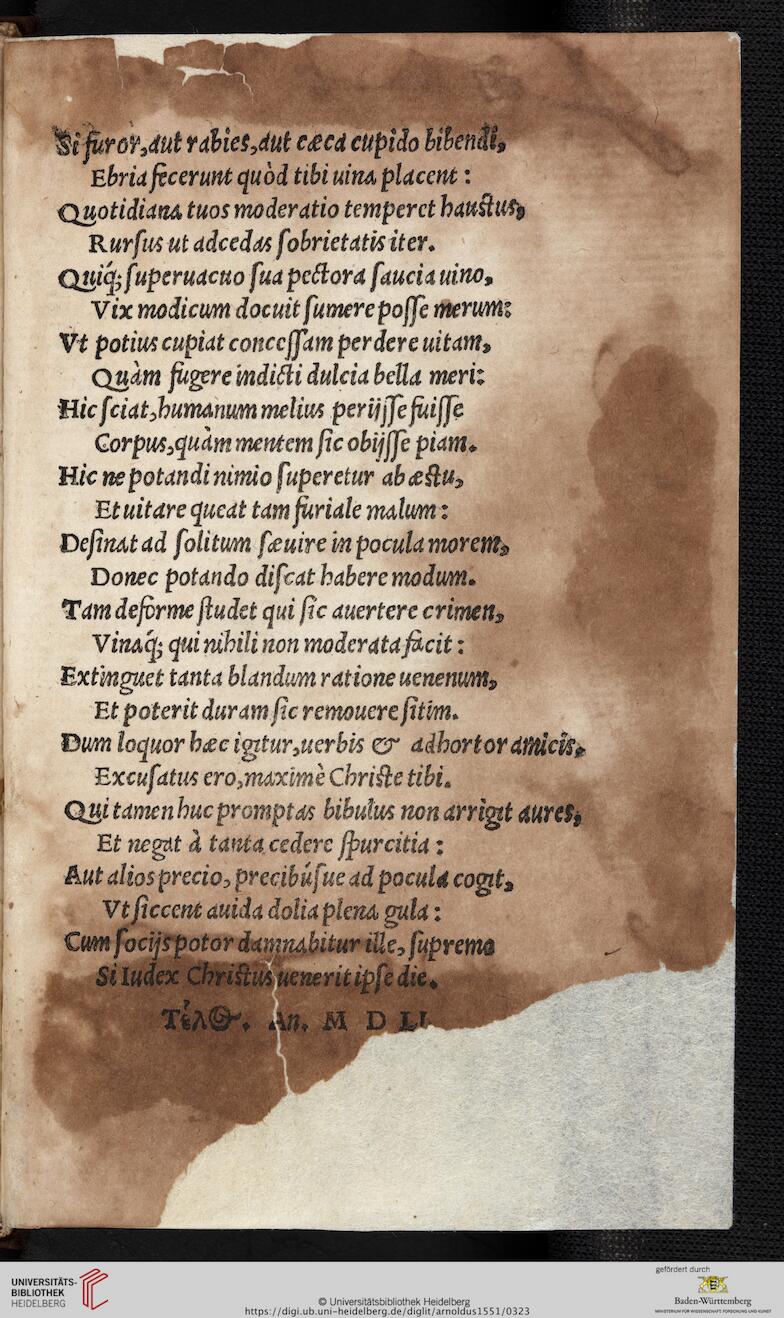 Si furor, aut rabies, aut cæca cupido bibendi,
Ebria fecerunt quòd tibi uina placent :
Quotidiana tuos moderatio temperet haustus,
Rursus ut adcedas sobrietatis iter.
Quiq́; superuacuo sua pectora saucia uino,
Vix modicum docuit sumere posse merum:
Vt potius cupiat concessam perdere uitam,
Quàm fugere indicti dulcia bella meri:
Hic sciat, humanum melius perijsse fuisse
Corpus, quàm mentem sic obijsse piam.
Hic ne potandi nimio superetur ab æstu,
Et uitare queat tam furiale malum :
Desinat ad solitum sæuire in pocula morem,
Donec potando discat habere modum.
Tam deforme studet qui sic auertere crimen,
Vinaq́; qui nihili non moderata facit :
Extinguet tanta blandum ratione uenenum,
Et poterit duram sic remouere sitim.
Dum loquor hæc igitur, uerbis & adhortor amicis,
Excusatus ero, maximè Christe tibi.
Qui tamen huc promptas bibulus non arrigit aures,
Et negat à tanta cedere spurcitia :
Aut alios precio, precibúsue ad pocula cogit,
Vt siccent auida dolia plena gula :
Cum socijs potor damnabitur ille, supremo
Si Iudex Christus uenerit ipse die.
Τέλος. An. M D LI.
UNIVERSITÄTS-
BIBLIOTHEK
HEIDELBERG
© Universitätsbibliothek Heidelberg
https://digi.ub.uni-heidelberg.de/diglit/arnoldus1551/0323
gefördert durch
Baden-Württemberg
MINISTERIUM FÜR WISSENSCHAFT, FORSCHUNG UND KUNST